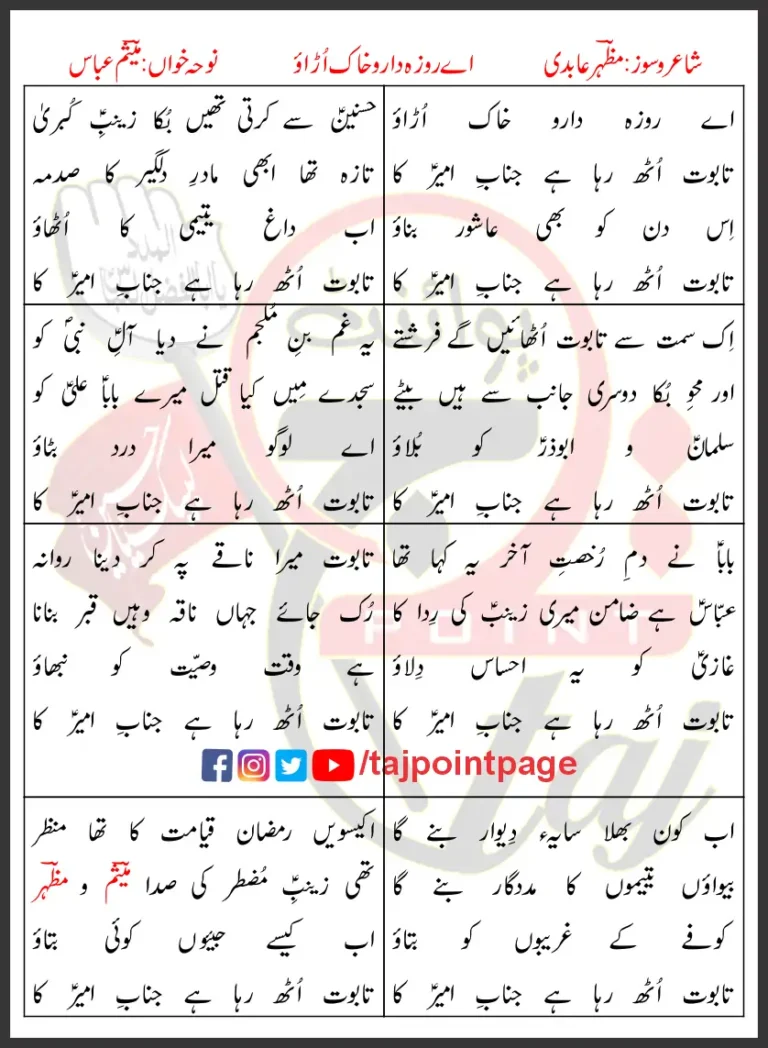 شاعر و سوز: مظہر عابدی اے روزہ دارو خاک اُڑاؤ نوحہ خواں: میثم عباس
اے روزہ دارو خاک اُڑاؤ
تابوت اُٹھ رہا ہے جنابِ امیرؑ کا
اِس دن کو بھی عاشور بناؤ
تابوت اُٹھ رہا ہے جنابِ امیرؑ کا
حسنینؑ سے کرتی تھیں بُکا زینبِؑ کُبریٰ
تازہ تھا ابھی مادرِ دلگیر کا صدمہ
اب داغ یتیمی کا اُٹھاؤ
تابوت اُٹھ رہا ہے جنابِ امیرؑ کا
اِک سمت سے تابوت اُٹھائیں گے فرشتے
اور محوِ بُکا دوسری جانب سے ہیں بیٹے
سلمانؑ و ابوذرؑ کو بُلاؤ
تابوت اُٹھ رہا ہے جنابِ امیرؑ کا
یہ غم بنِ مُلجم نے دیا آلِ نبیؐ کو
سجدے میں کیا قتل میرے باباؑ علیؑ کو
اے لوگو میرا درد بٹاؤ
تابوت اُٹھ رہا ہے جنابِ امیرؑ کا
باباؑ نے دمِ رُخصتِ آخر یہ کہا تھا
عبّاسؑ ہے ضامن میری زینبؑ کی رِدا کا
غازیؑ کو یہ احساس دِلاؤ
تابوت اُٹھ رہا ہے جنابِ امیرؑ کا
تابوت میرا ناقے پہ کر دینا روانہ
رُک جائے جہاں ناقہ وہیں قبر بنانا
ہے وقت وصیّت کو نبھاؤ
تابوت اُٹھ رہا ہے جنابِ امیرؑ کا
/tajpointpage
اب کون بھلا سایہء دِیوار بنے گا
بیواؤں یتیموں کا مددگار بنے گا
کوفے کے غریبوں کو بتاؤ
تابوت اُٹھ رہا ہے جنابِ امیرؑ کا
اکیسویں رمضان قیامت کا تھا منظر
تھی زینبِؑ مُضطر کی صدا میثم و مظہر
اب کیسے جیئوں کوئی بتاؤ
تابوت اُٹھ رہا ہے جنابِ امیرؑ کا
پوائنٹ
POINT
taj